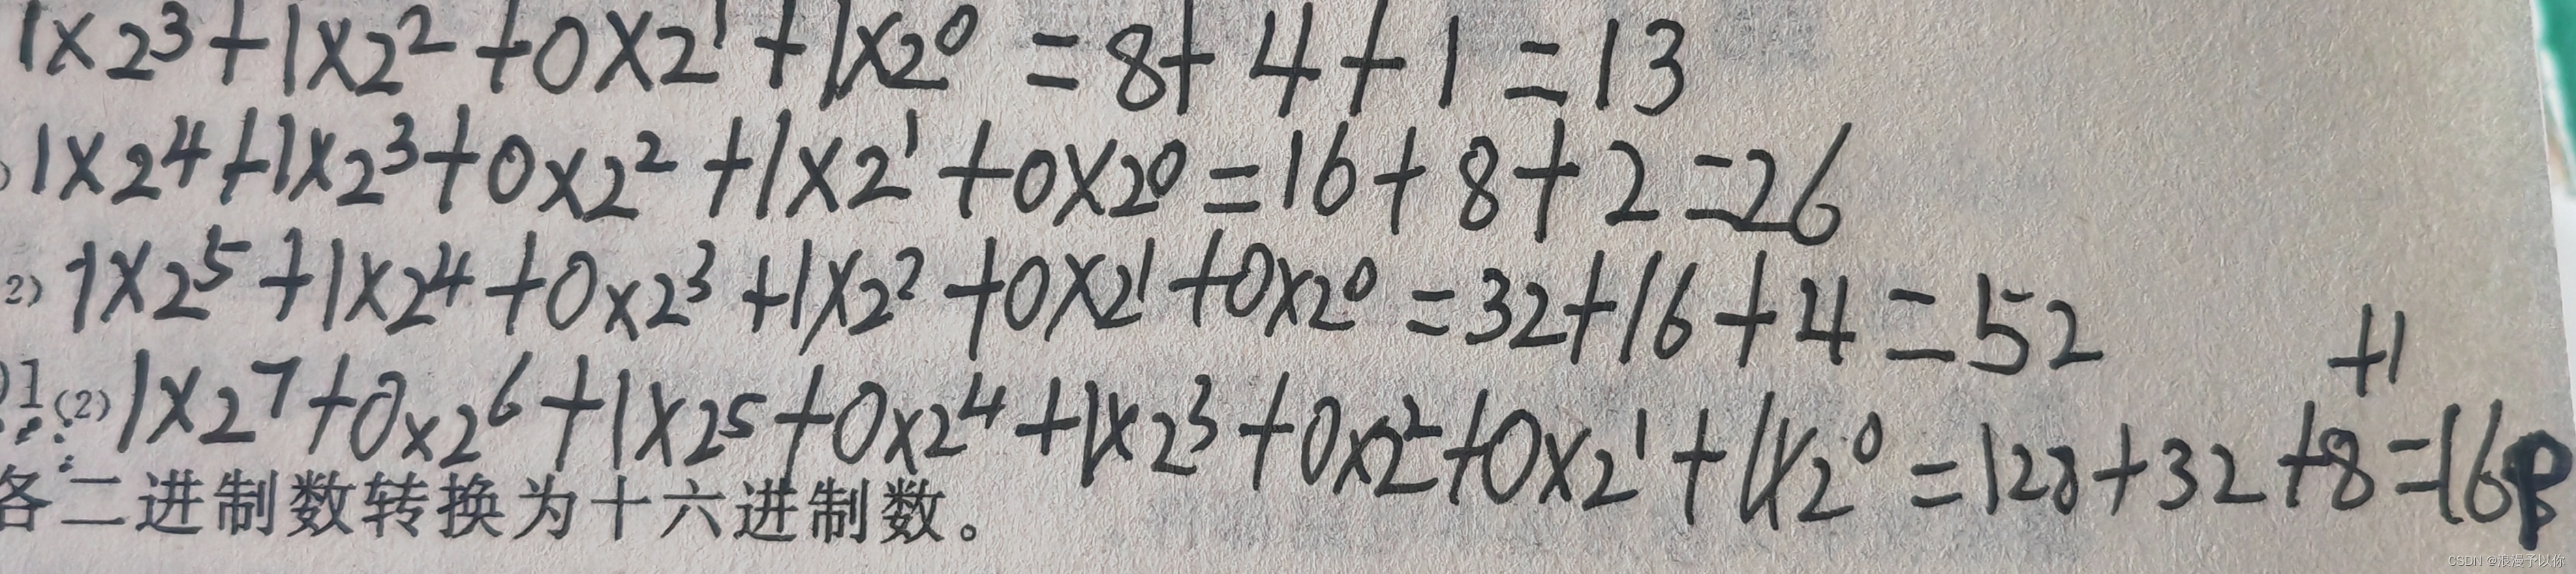 1×2³+1×2²+0×2¹+1×2⁰=8+4+1=13
)1×2⁴+1×2³+0×2²+1×2¹+0×2⁰=16+8+2=26
2)1×2⁵+1×2⁴+0×2³+1×2²+0×2¹+0×2⁰=32+16+4=52
+1
1(2)1×2⁷+0×2⁶+1×2⁵+0×2⁴+1×2³+0×2²+0×2¹+1×2⁰=128+32+8=16
各二进制数转换为十六进制数。
CSDN @浪漫予以你